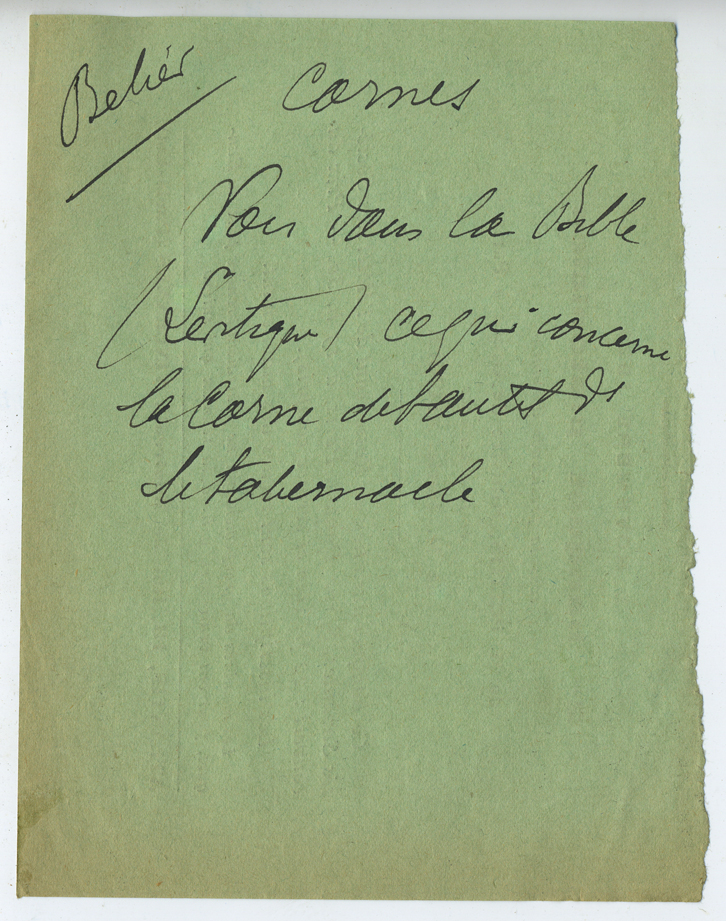 Belier
Cornes
Voir dans la Bible
(Levitique) ce qui concerne
la Corne de l'autel
de tabernacle